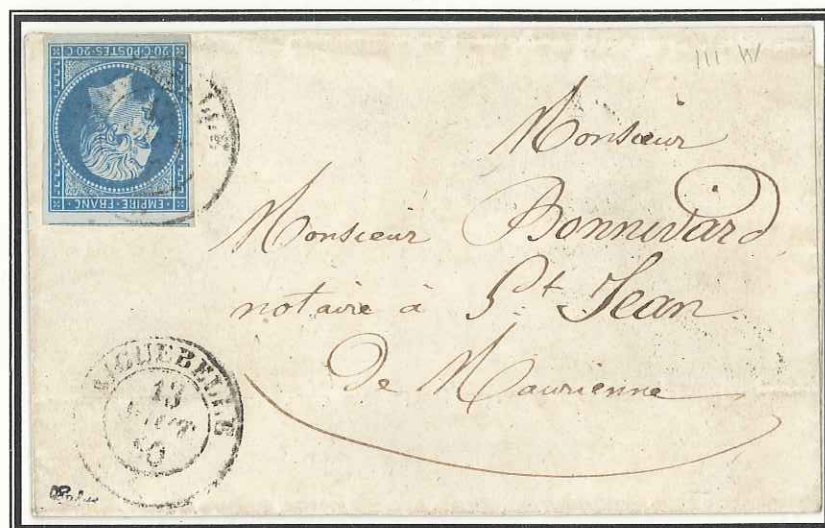 20 C· POSTES · 20 C
EMPIRE · FRANC ·
III W
Monsieur
Monsieur Bonnivard
notaire à St Jean
De Maurienne
AIGUEBELLE
13
AOUT
60